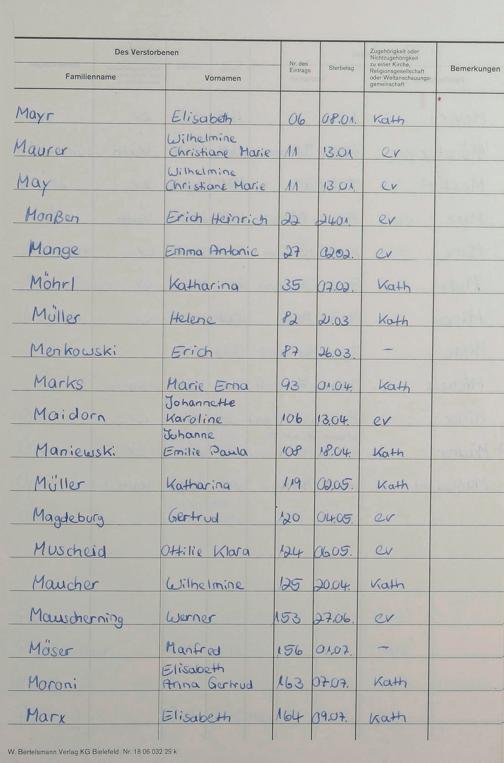 Des Verstorbenen
Familienname Vornamen Nr. des Eintrags Sterbetag Zugehörigkeit oder Nichtzugehörigkeit zu einer Kirche, Religionsgesellschaft oder Weltanschauungsgemeinschaft Bemerkungen
Mayr Elisabeth 06 08.01. Kath
Wilhelmine
Maurer Christiane Marie 11 13.01 ev
Wilhelmine
May Christiane Marie 11 13.01 ev
Monßen Erich Heinrich 22 24.01. ev
Mange Emma Antonie 27 02.02. ev
Möhrl Katharina 35 07.02. Kath
Müller Helene 82 21.03 Kath
Menkowski Erich 87 26.03. –
Marks Marie Erna 93 01.04. Kath
Johannette
Maidorn Karoline 106 13.04. ev
Johanne
Maniewski Emilie Paula 108 18.04. Kath
Müller Katharina 119 02.05. Kath
Magdeburg Gertrud 120 04.05. ev
Muscheid Ottilie Klara 124 06.05. ev
Maucher Wilhelmine 125 20.04. Kath
Mauscherning Werner 153 27.06. ev
Möser Manfred 156 01.07. –
Elisabeth
Moroni Anna Gertrud 163 07.07. Kath
Marx Elisabeth 164 09.07. Kath
W. Bertelsmann Verlag KG Bielefeld Nr. 18 06 032 25 k